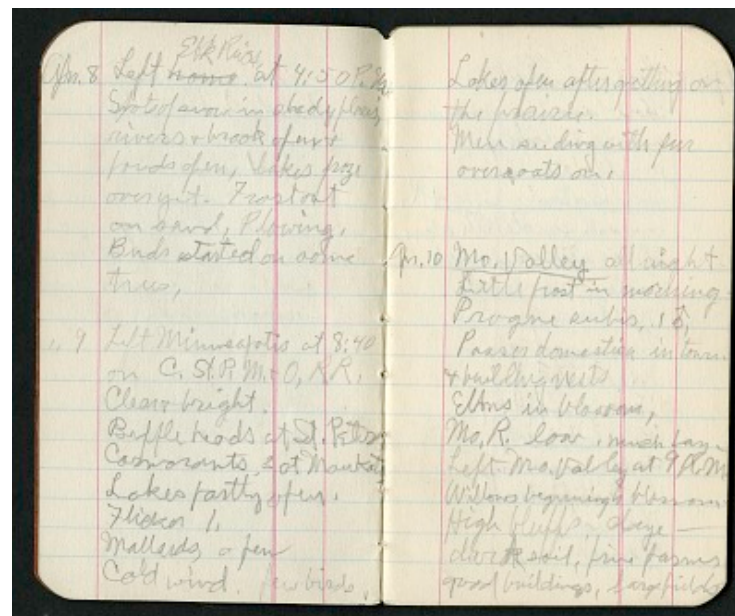 Elk River
Apr. 8 Left home at 4:50 P.M.
Spots of snow in shady places,
rivers & brook open &
ponds open, lakes froze
over yet. Frost out
on sand, Plowing,
Buds started on some
trees,
" 9 Left Minneapolis at 8:40
on C. St. P. M. & O, RR,
Clear & bright.
Buffle heads at St. Peters
Cormorants, 2 at Mankato
Lakes partly open.
Flicker 1,
Mallards, a few
Cold wind. few birds,
Lakes open after getting on
the prairie.
Men seeding with fur
overcoats on,
Apr. 10 Mo. Valley all night
Little frost in morning
Progne subis, 1 ♂,
Passer domestica in town
& building nests
Elms in blossom,
Mo, R. low, much
Left Mo. Valley at 9 A.M.
Willows beginning to blossom
High bluffs
dark soil, fine farms
good buildings, large fields